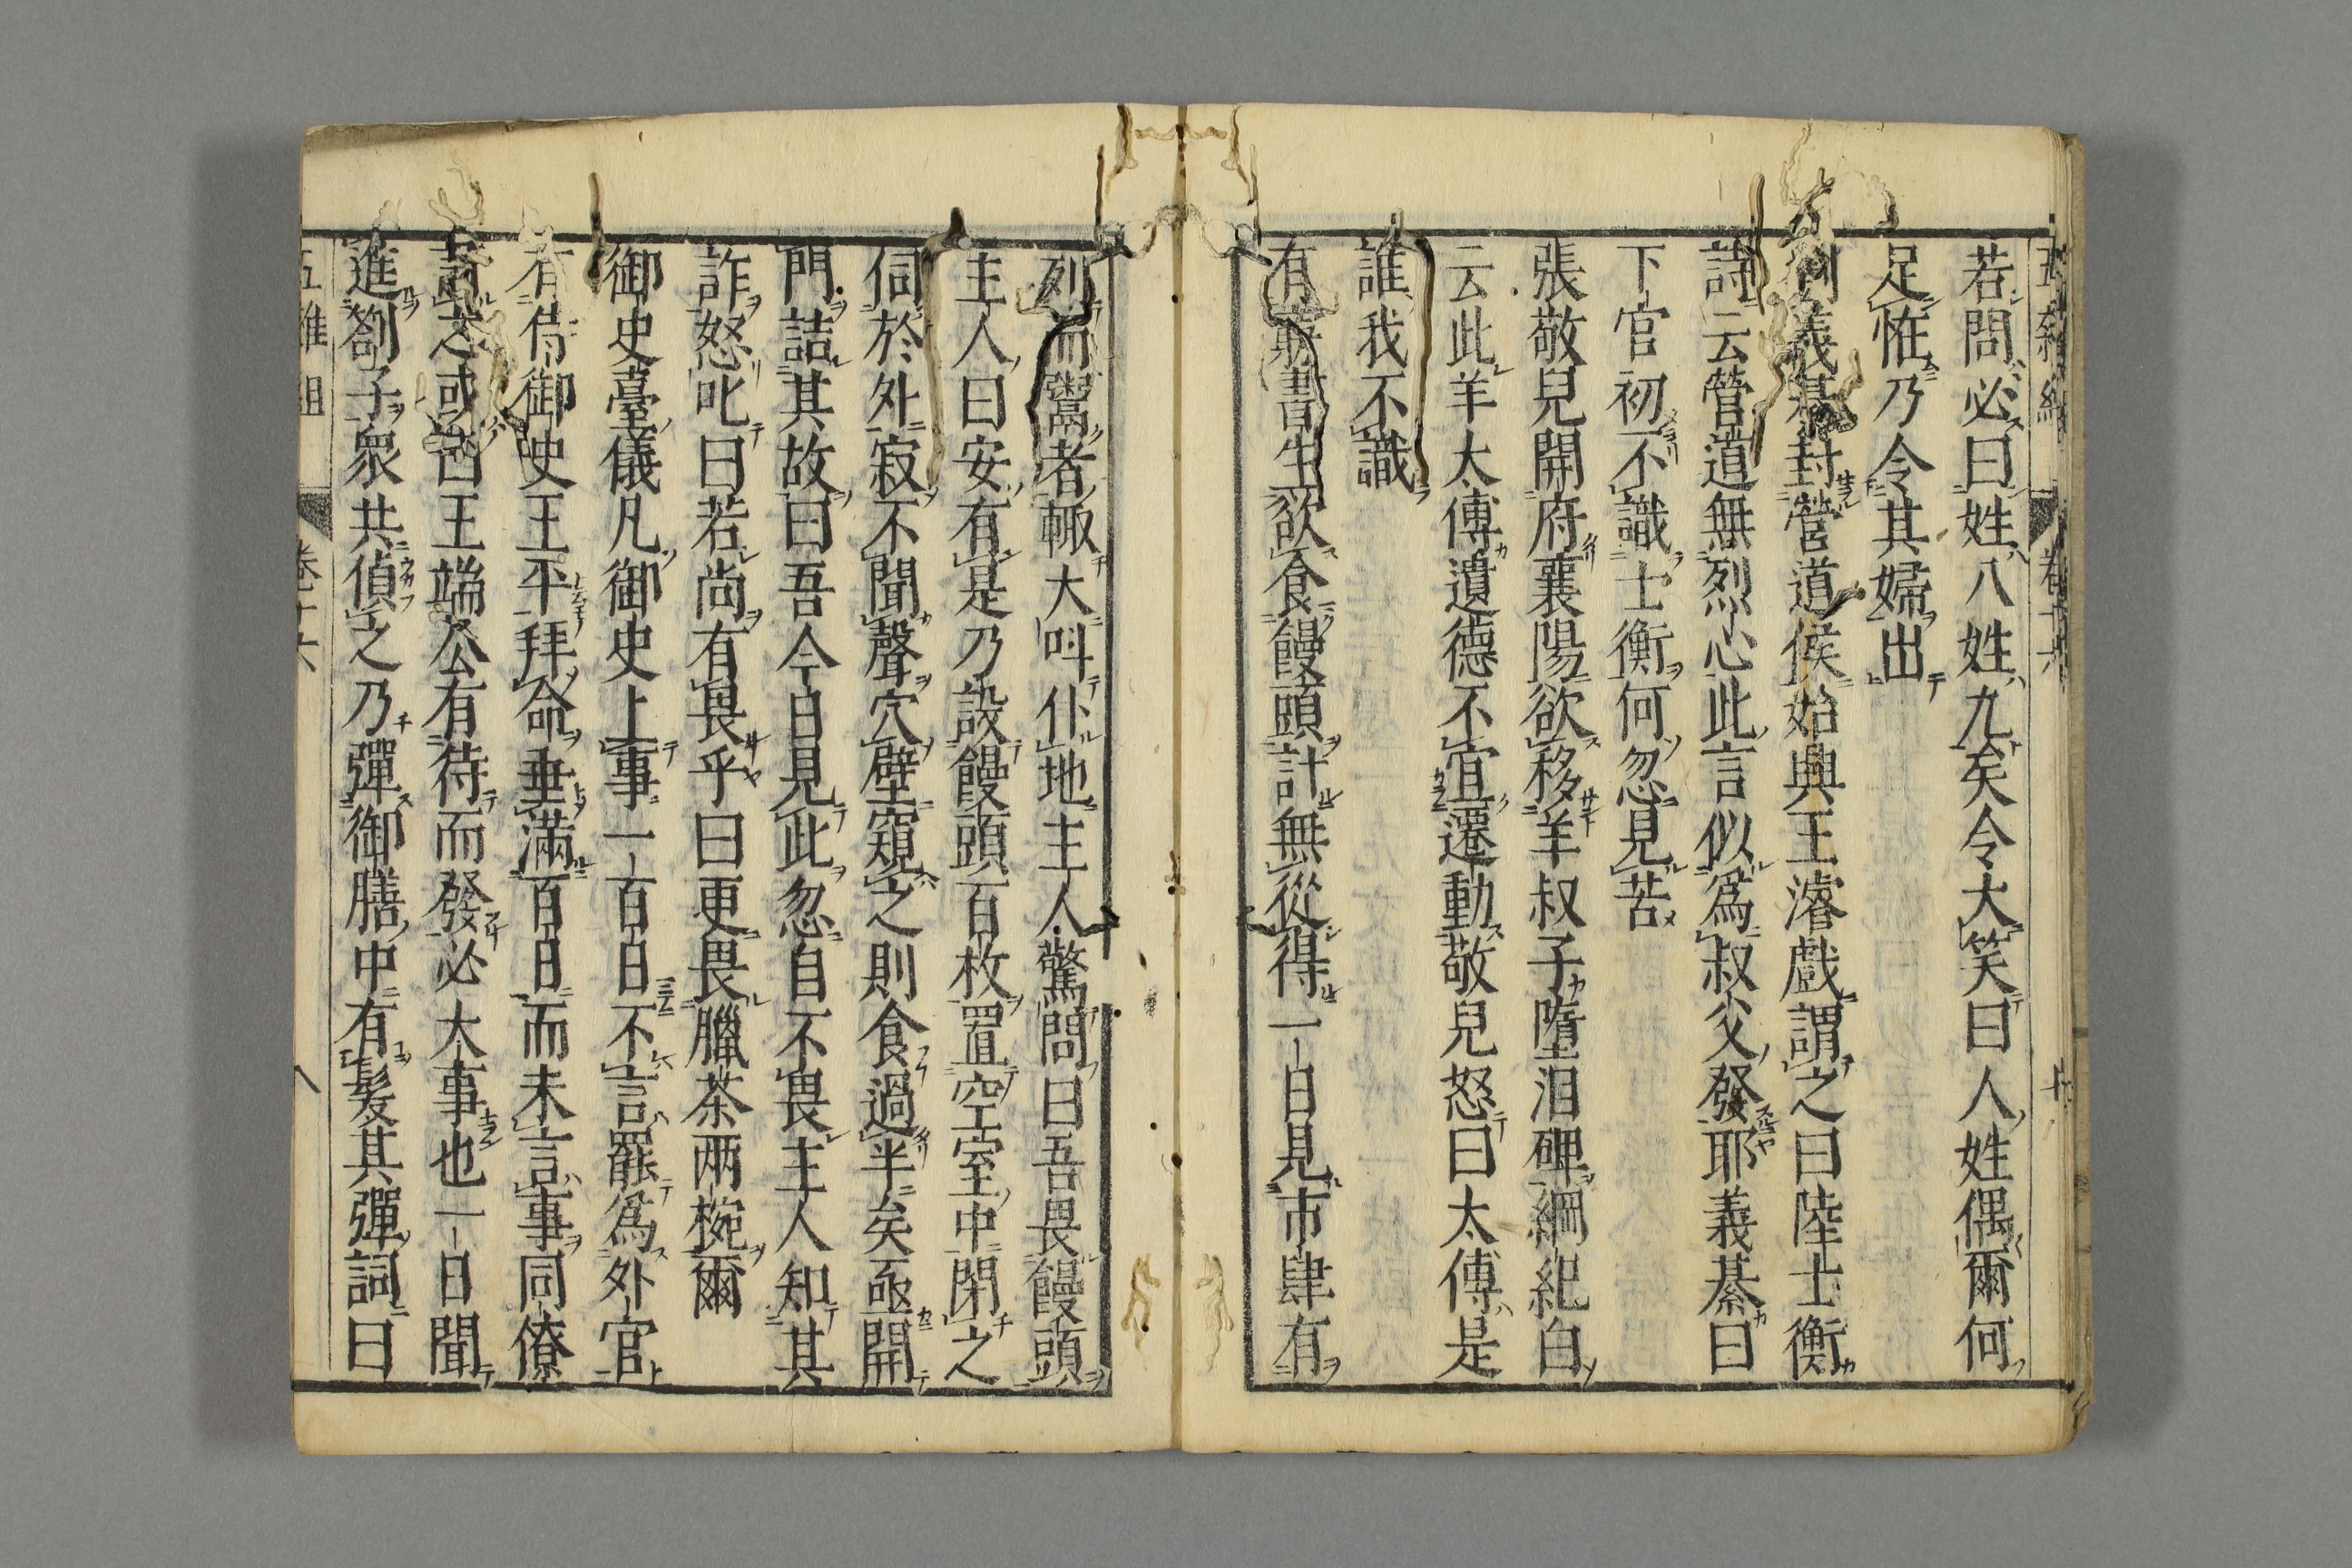 五雜組 卷十六
若問必曰姓八姓九矣令大笑曰人姓偶爾何
足恠乃令其婦出
劉義綦封營道侯始興王濬戲謂之曰陸士衡
詩云營道無烈心此言似爲叔父發耶義綦曰
下官初不識士衡何忽見苦
張敬兒開府襄陽欲移羊叔子墮泪碑綱紀白
云此羊太傅遺德不宜遷動敬兒怒曰太傅是
誰我不識
有窮書生欲食饅頭計無從得一日見市肆有
列而鬻者輙大呌仆地主人驚問曰吾畏饅頭
主人曰安有是乃設饅頭百枚置空室中閉之
伺於外寂不聞聲穴壁窺之則食過半矣亟開
門詰其故曰吾今日見此忽自不畏主人知其
詐怒叱曰若尚有畏乎曰更畏臘茶两椀爾
御史臺儀凡御史上事一百日不言罷爲外官
有侍御史王平拜命垂滿百日而未言事同僚
訝之或曰王端公有待而發必大事也一日聞
進劄子衆共偵之乃彈御膳中有髮其彈詞曰
五雜組 卷十六